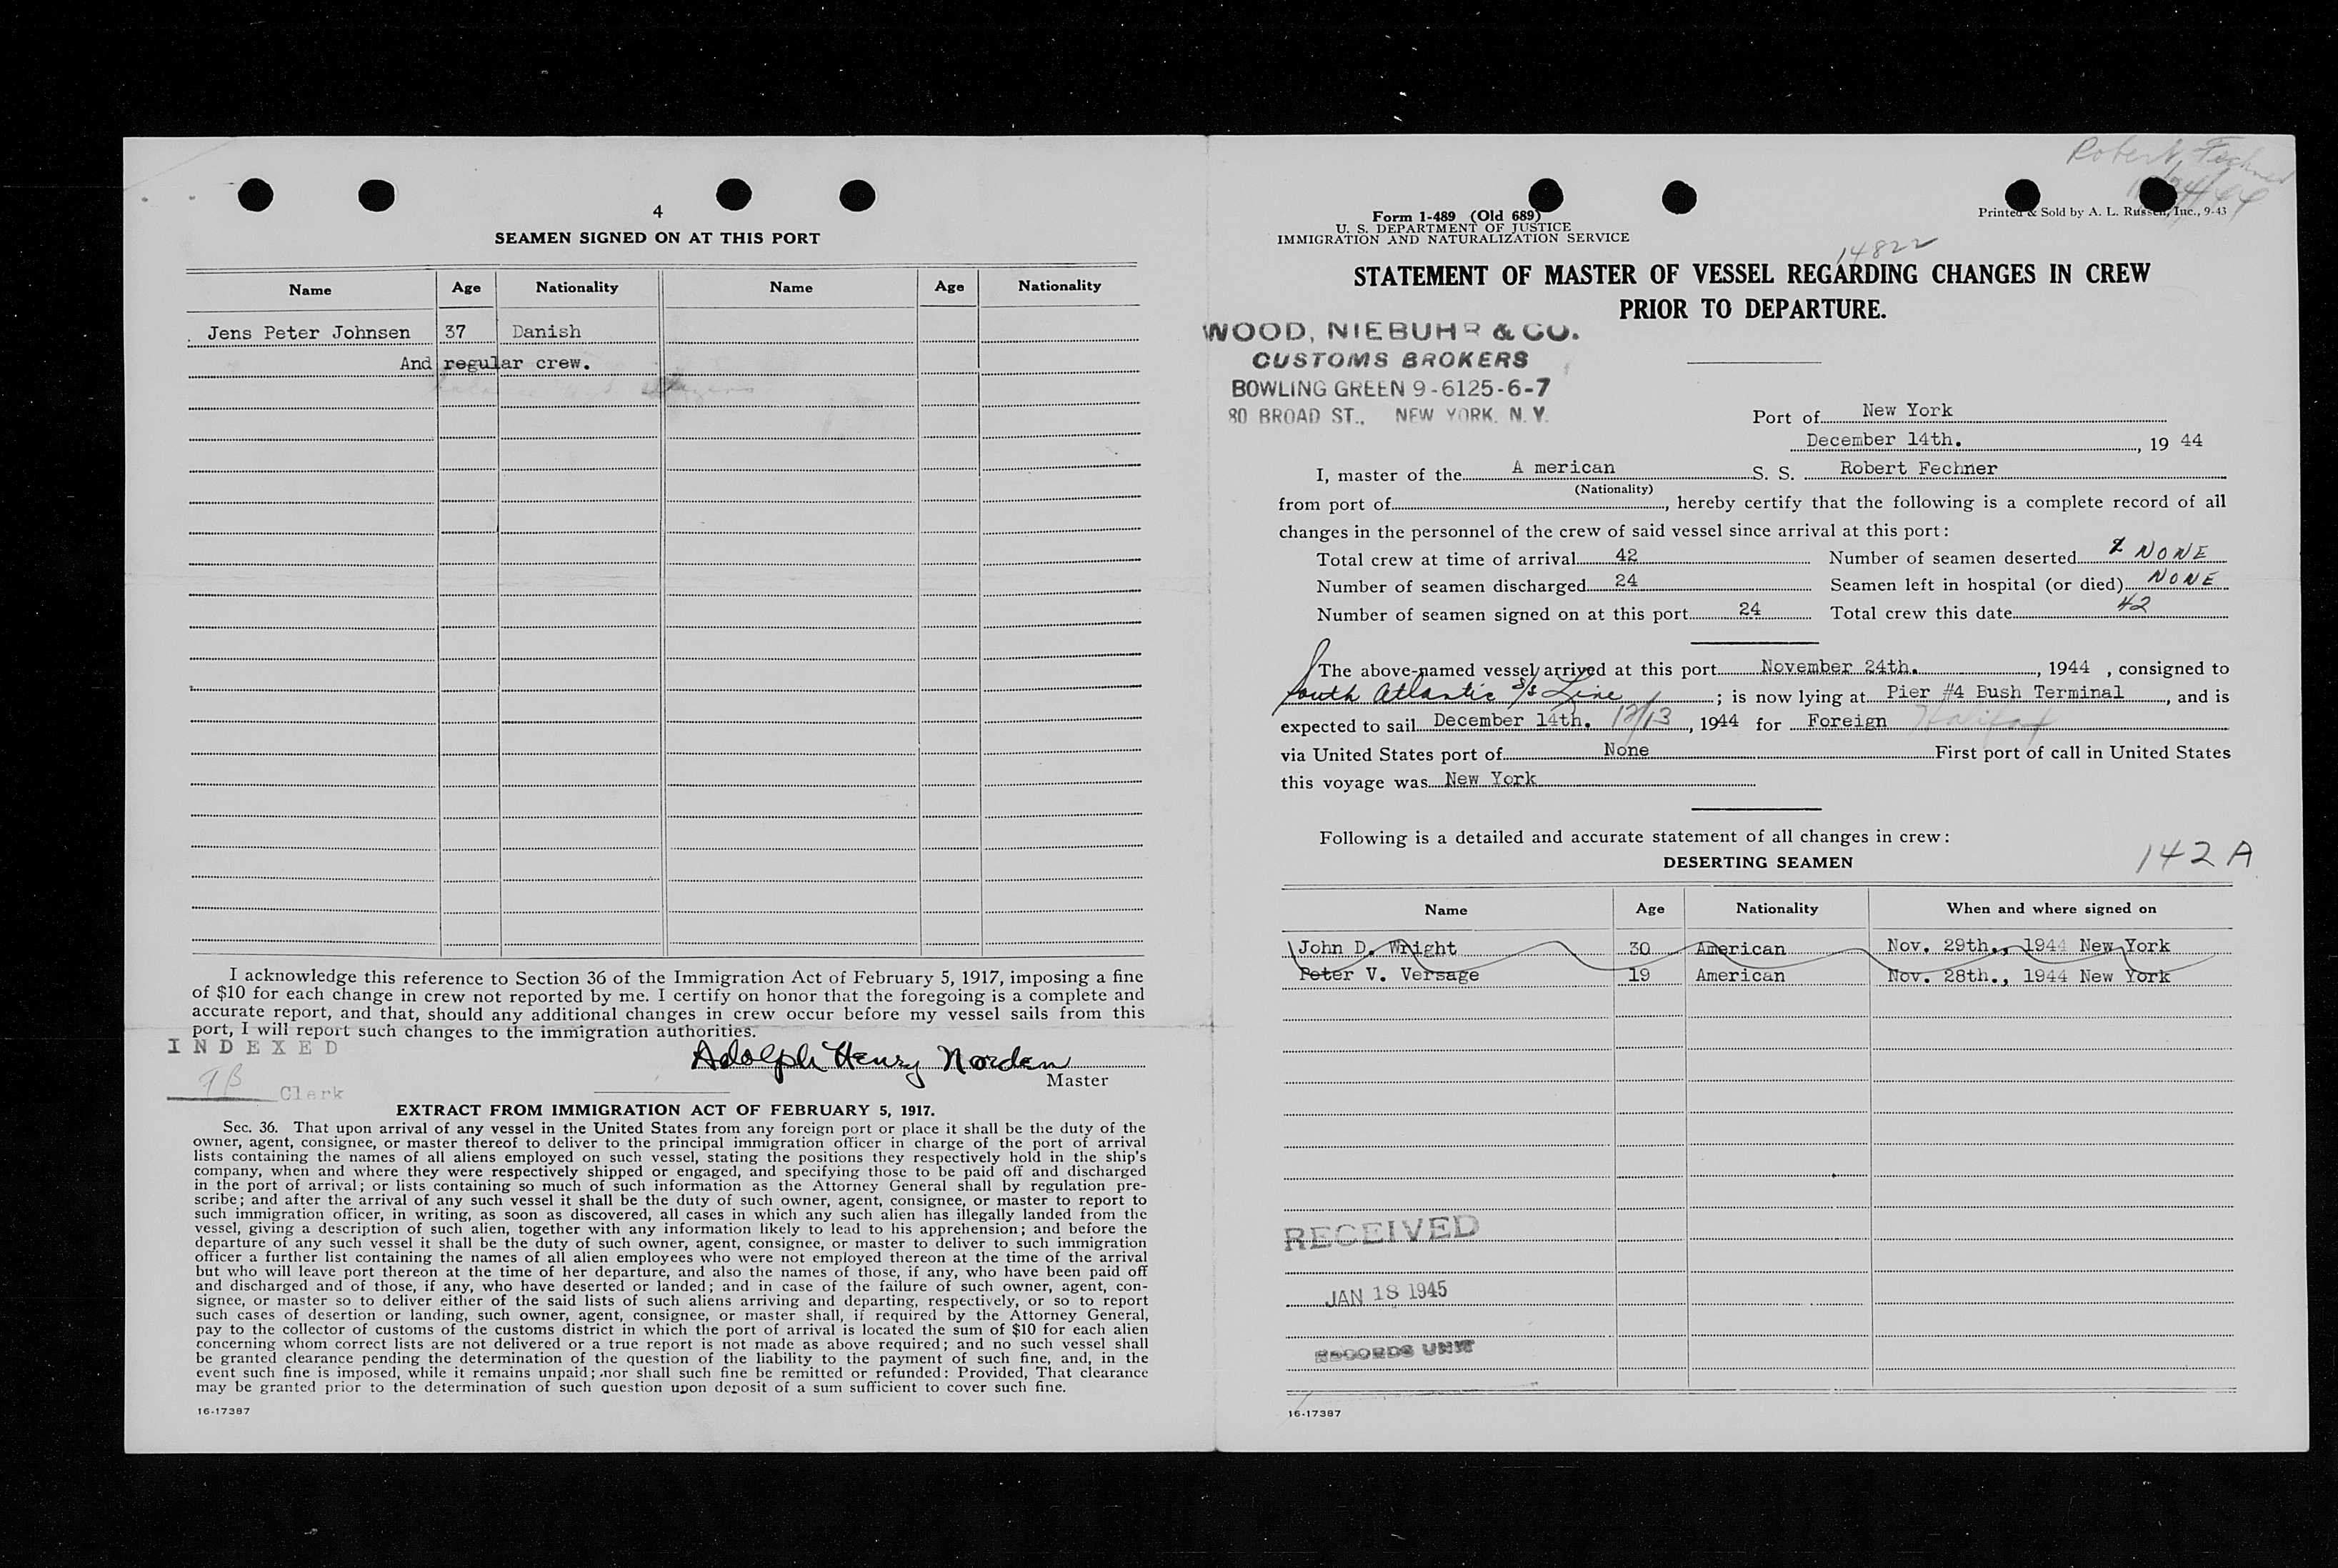 4
SEAMEN SIGNED ON AT THIS PORT
Name Age Nationality Name Age Nationality
Jens Peter Johnsen 37 Danish
And regular crew.
I acknowledge this reference to Section 36 of the Immigration Act of February 5, 1917, imposing a fine
of $10 for each change in crew not reported by me. I certify on honor that the foregoing is a complete and
accurate report, and that, should any additional changes in crew occur before my vessel sails from this
port, I will report such changes to the immigration authorities.
INDEXED
Adolph Henry Norden
Master
Clerk
EXTRACT FROM IMMIGRATION ACT OF FEBRUARY 5, 1917.
Sec. 36. That upon arrival of any vessel in the United States from any foreign port or place it shall be the duty of the
owner, agent, consignee, or master thereof to deliver to the principal immigration officer in charge of the port of arrival
lists containing the names of all aliens employed on such vessel, stating the positions they respectively hold in the ship's
company, when and where they were respectively shipped or engaged, and specifying those to be paid off and discharged
in the port of arrival; or lists containing so much of such information as the Attorney General shall by regulation pre-
scribe; and after the arrival of any such vessel it shall be the duty of such owner, agent, consignee, or master to report to
such immigration officer, in writing, as soon as discovered, all cases in which any such alien has illegally landed from the
vessel, giving a description of such alien, together with any information likely to lead to his apprehension; and before the
departure of any such vessel it shall be the duty of such owner, agent, consignee, or master to deliver to such immigration
officer a further list containing the names of all alien employees who were not employed thereon at the time of the arrival
but who will leave port thereon at the time of her departure, and also the names of those, if any, who have been paid off
and discharged and of those, if any, who have deserted or landed; and in case of the failure of such owner, agent, con-
signee, or master so to deliver either of the said lists of such aliens arriving and departing, respectively, or so to report
such cases of desertion or landing, such owner, agent, consignee, or master shall, if required by the Attorney General,
pay to the collector of customs of the customs district in which the port of arrival is located the sum of $10 for each alien
concerning whom correct lists are not delivered or a true report is not made as above required; and no such vessel shall
be granted clearance pending the determination of the question of the liability to the payment of such fine, and, in the
event such fine is imposed, while it remains unpaid; nor shall such fine be remitted or refunded: Provided, That clearance
may be granted prior to the determination of such question upon deposit of a sum sufficient to cover such fine.
16-17387
Robert Fechner
Form 1-489 (Old 689)
U. S. DEPARTMENT OF JUSTICE
IMMIGRATION AND NATURALIZATION SERVICE
Printed & Sold by A. L. Russell, Inc., 9-43
14822
STATEMENT OF MASTER OF VESSEL REGARDING CHANGES IN CREW
PRIOR TO DEPARTURE.
WOOD, NIEBUHR & CO.
CUSTOMS BROKERS
BOWLING GREEN 9-6125-6-7
80 BROAD ST., NEW YORK. N. Y.
Port of New York
December 14th. , 19 44
I, master of the A merican S. S. Robert Fechner
(Nationality)
from port of , hereby certify that the following is a complete record of all
changes in the personnel of the crew of said vessel since arrival at this port:
Total crew at time of arrival 42 Number of seamen deserted 2 NONE
Number of seamen discharged 24 Seamen left in hospital (or died) NONE
Number of seamen signed on at this port 24 Total crew this date 42
The above-named vessel arrived at this port November 24th. , 1944 , consigned to
South Atlantic S/S Line ; is now lying at Pier #4 Bush Terminal , and is
expected to sail December 14th. 12/13 , 1944 for Foreign Halifax
via United States port of None First port of call in United States
this voyage was New York
Following is a detailed and accurate statement of all changes in crew:
DESERTING SEAMEN
142 A
Name Age Nationality When and where signed on
John D. Wright 30 American Nov. 29th., 1944 New York
Peter V. Versage 19 American Nov. 28th., 1944 New York
RECEIVED
JAN 18 1945
RECORDS UNIT
16-17387